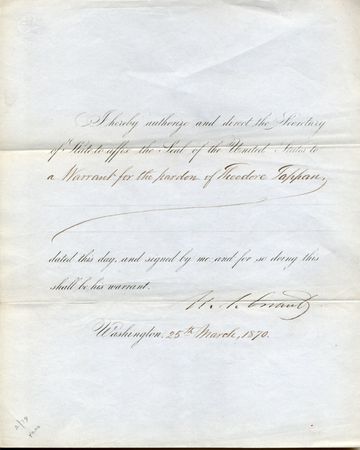 I hereby authorize and direct the Secretary
of State to affix the Seal of the United States to
a Warrant for the pardon of Theodore Tappan,
dated this day, and signed by me and for so doing this
shall be his warrant.
U. S. Grant
Washington, 25th March, 1870.